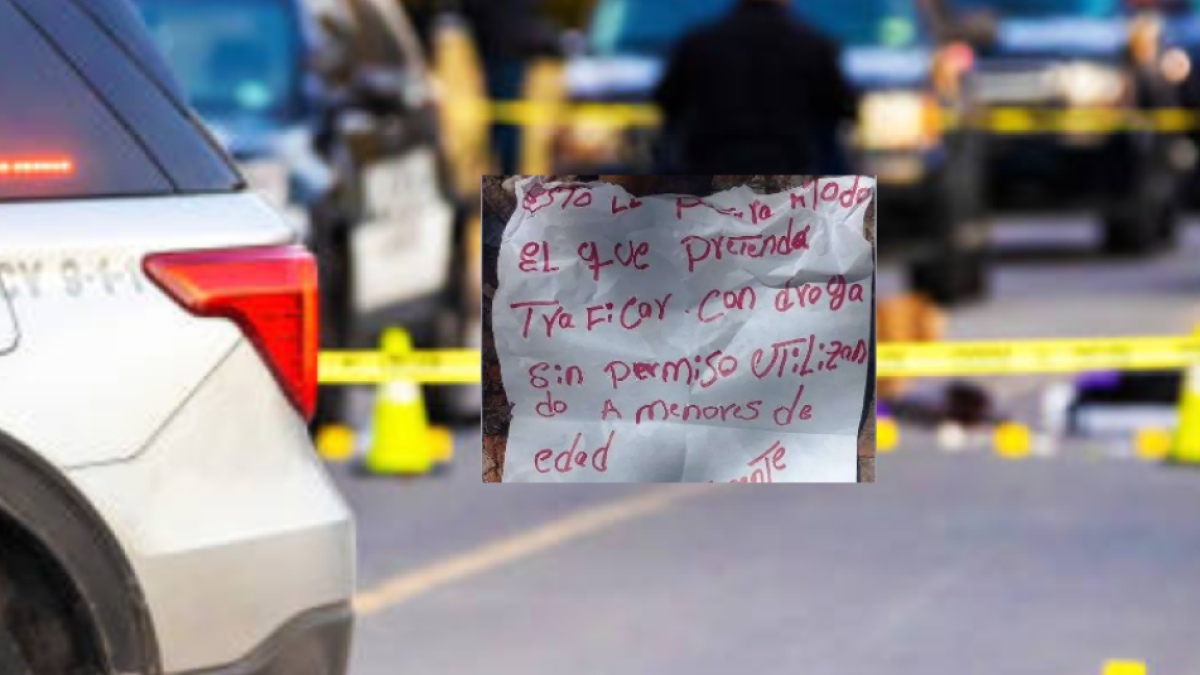 ESTO LE A TODO
EL que PreTenda
TraFicar con droga
Sin permiso UTiLizan
do A menores de
edad